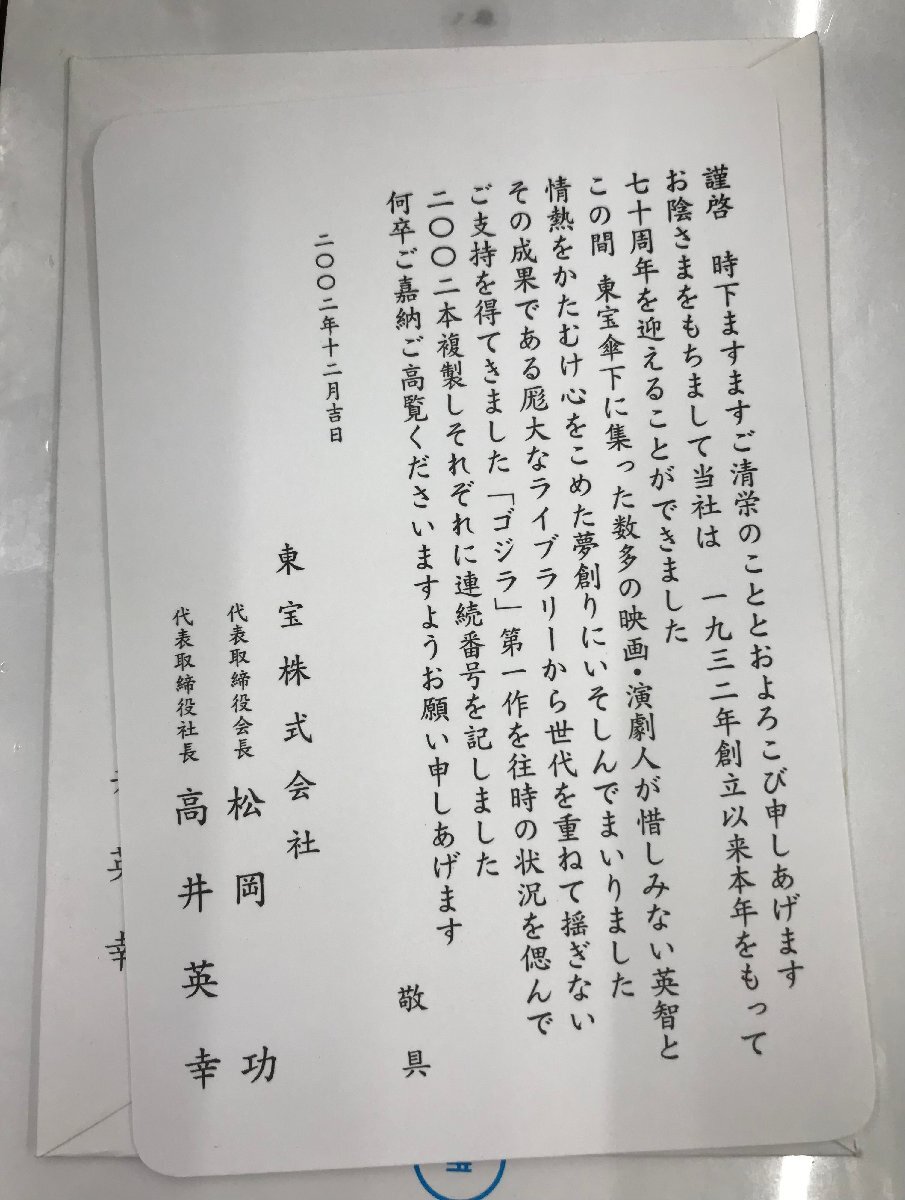 謹啓　時下ますますご清栄のこととおよろこび申しあげます
お陰さまをもちまして当社は　一九三二年創立以来本年をもって
七十周年を迎えることができました
この間　東宝傘下に集った数多の映画・演劇人が惜しみない英智と
情熱をかたむけ心をこめた夢創りにいそしんでまいりました
その成果である厖大なライブラリーから世代を重ねて揺ぎない
ご支持を得てきました「ゴジラ」第一作を往時の状況を偲んで
二〇〇二本複製しそれぞれに連続番号を記しました
何卒ご嘉納ご高覧くださいますようお願い申しあげます
敬具
二〇〇二年十二月吉日
東宝株式会社
代表取締役会長　松岡　功
代表取締役社長　高井英幸
英幸